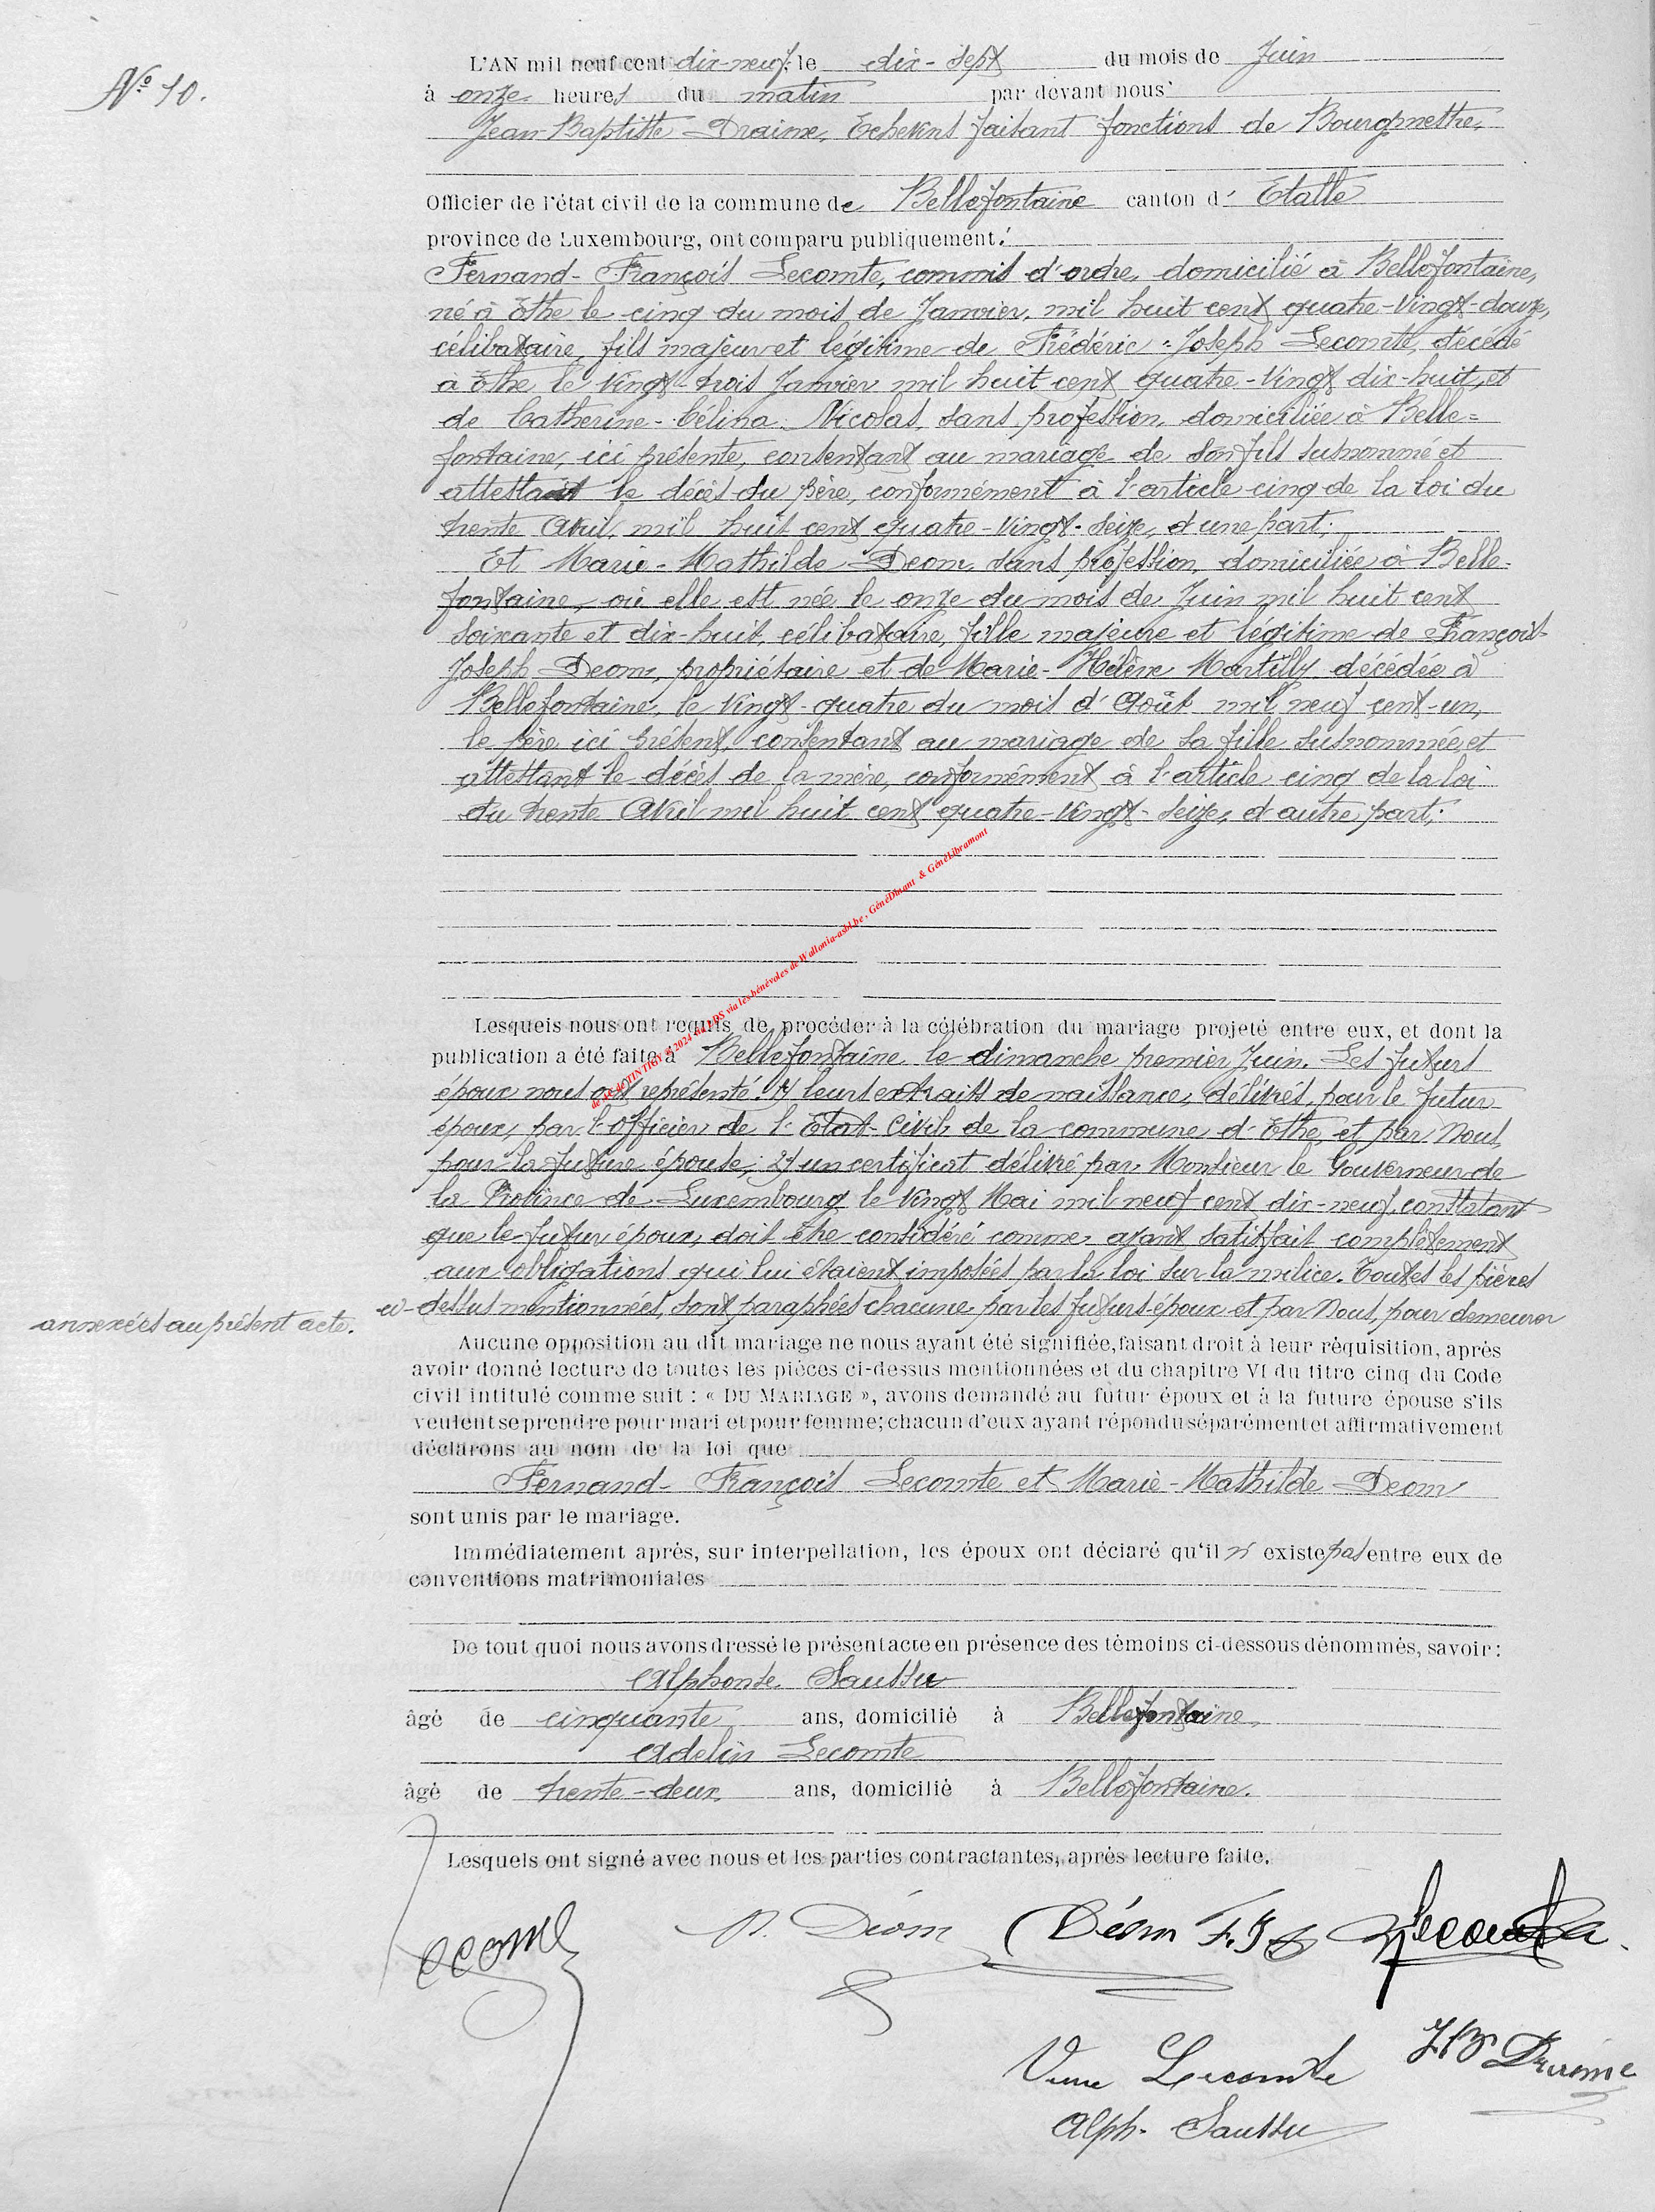 N.º 10.
L'AN mil neuf cent dix-neuf, le dix-sept du mois de Juin
à onze heures du matin par devant nous
Jean-Baptiste Draime, Echevins faisant fonctions de Bourgmestre,
Officier de l'état civil de la commune de Bellefontaine canton d' Etalle
province de Luxembourg, ont comparu publiquement:
Fernand-François Lecomte, commis d'ordre, domicilié à Bellefontaine,
né à Ethe le cinq du mois de Janvier, mil huit cent quatre-vingt-douze,
célibataire, fils majeur et légitime de Frédéric-Joseph Lecomte, décédé
à Ethe le vingt-trois Janvier mil huit cent quatre-vingt dix-huit, et
de Catherine-Célina Nicolas, sans profession, domiciliée à Belle=
fontaine, ici présente, consentant au mariage de son fils susnommé et
attestant le décès du père, conformément à l'article cinq de la loi du
trente Avril, mil huit cent quatre-vingt-seize, d'une part;
Et Marie-Mathilde Deom, sans profession, domiciliée à Belle-
fontaine, où elle est née le onze du mois de Juin mil huit cent
soixante et dix-huit, célibataire, fille majeure et légitime de François-
Joseph Deom, propriétaire et de Marie-Hélène Martilly décédée à
Bellefontaine, le vingt-quatre du mois d'Août mil neuf cent-un,
le père ici présent, consentant au mariage de sa fille susnommée, et
attestant le décès de la mère, conformément à l'article cinq de la loi
du trente Avril mil huit cent quatre-vingt-seize, d'autre part;
de TINTIGY © 2024 via les bénévoles de Wallonia-asbl.be, GénéDinant & GénéLibramont
Lesquels nous ont requis de procéder à la célébration du mariage projeté entre eux, et dont la
publication a été faite à Bellefontaine le dimanche premier Juin. Les futurs
époux nous ont représenté: 1) leurs extraits de naissance, délivrés, pour le futur
époux, par l'officier de l'Etat-Civil de la commune d'Ethe, et par Nous,
pour la future épouse; 2) un certificat délivré par Monsieur le Gouverneur de
la Province de Luxembourg le vingt Mai mil neuf cent dix-neuf, constatant
que le futur époux, doit être considéré comme ayant satisfait complètement
aux obligations qui lui étaient imposées par la loi sur la milice. Toutes les pièces
ci-dessus mentionnées, sont paraphées chacune par les futurs époux et par Nous, pour demeurer
annexées au présent acte.
Aucune opposition au dit mariage ne nous ayant été signifiée, faisant droit à leur réquisition, après
avoir donné lecture de toutes les pièces ci-dessus mentionnées et du chapitre VI du titre cinq du Code
civil intitulé comme suit : « DU MARIAGE », avons demandé au futur époux et à la future épouse s'ils
veulent se prendre pour mari et pour femme; chacun d'eux ayant répondu séparément et affirmativement
déclarons au nom de la loi que
Fernand-François Lecomte et Marie-Mathilde Deom
sont unis par le mariage.
Immédiatement après, sur interpellation, les époux ont déclaré qu'il n' existe pas entre eux de
conventions matrimoniales
De tout quoi nous avons dressé le présent acte en présence des témoins ci-dessous dénommés, savoir :
Alphonse Saussu
âgé de cinquante ans, domicilié à Bellefontaine,
Adelin Lecomte
âgé de trente-deux ans, domicilié à Bellefontaine.
Lesquels ont signé avec nous et les parties contractantes, après lecture faite.
Lecomte M. Déom Déom F.J Lecomte
Vve Lecomte JB Draime
Alph. Saussu